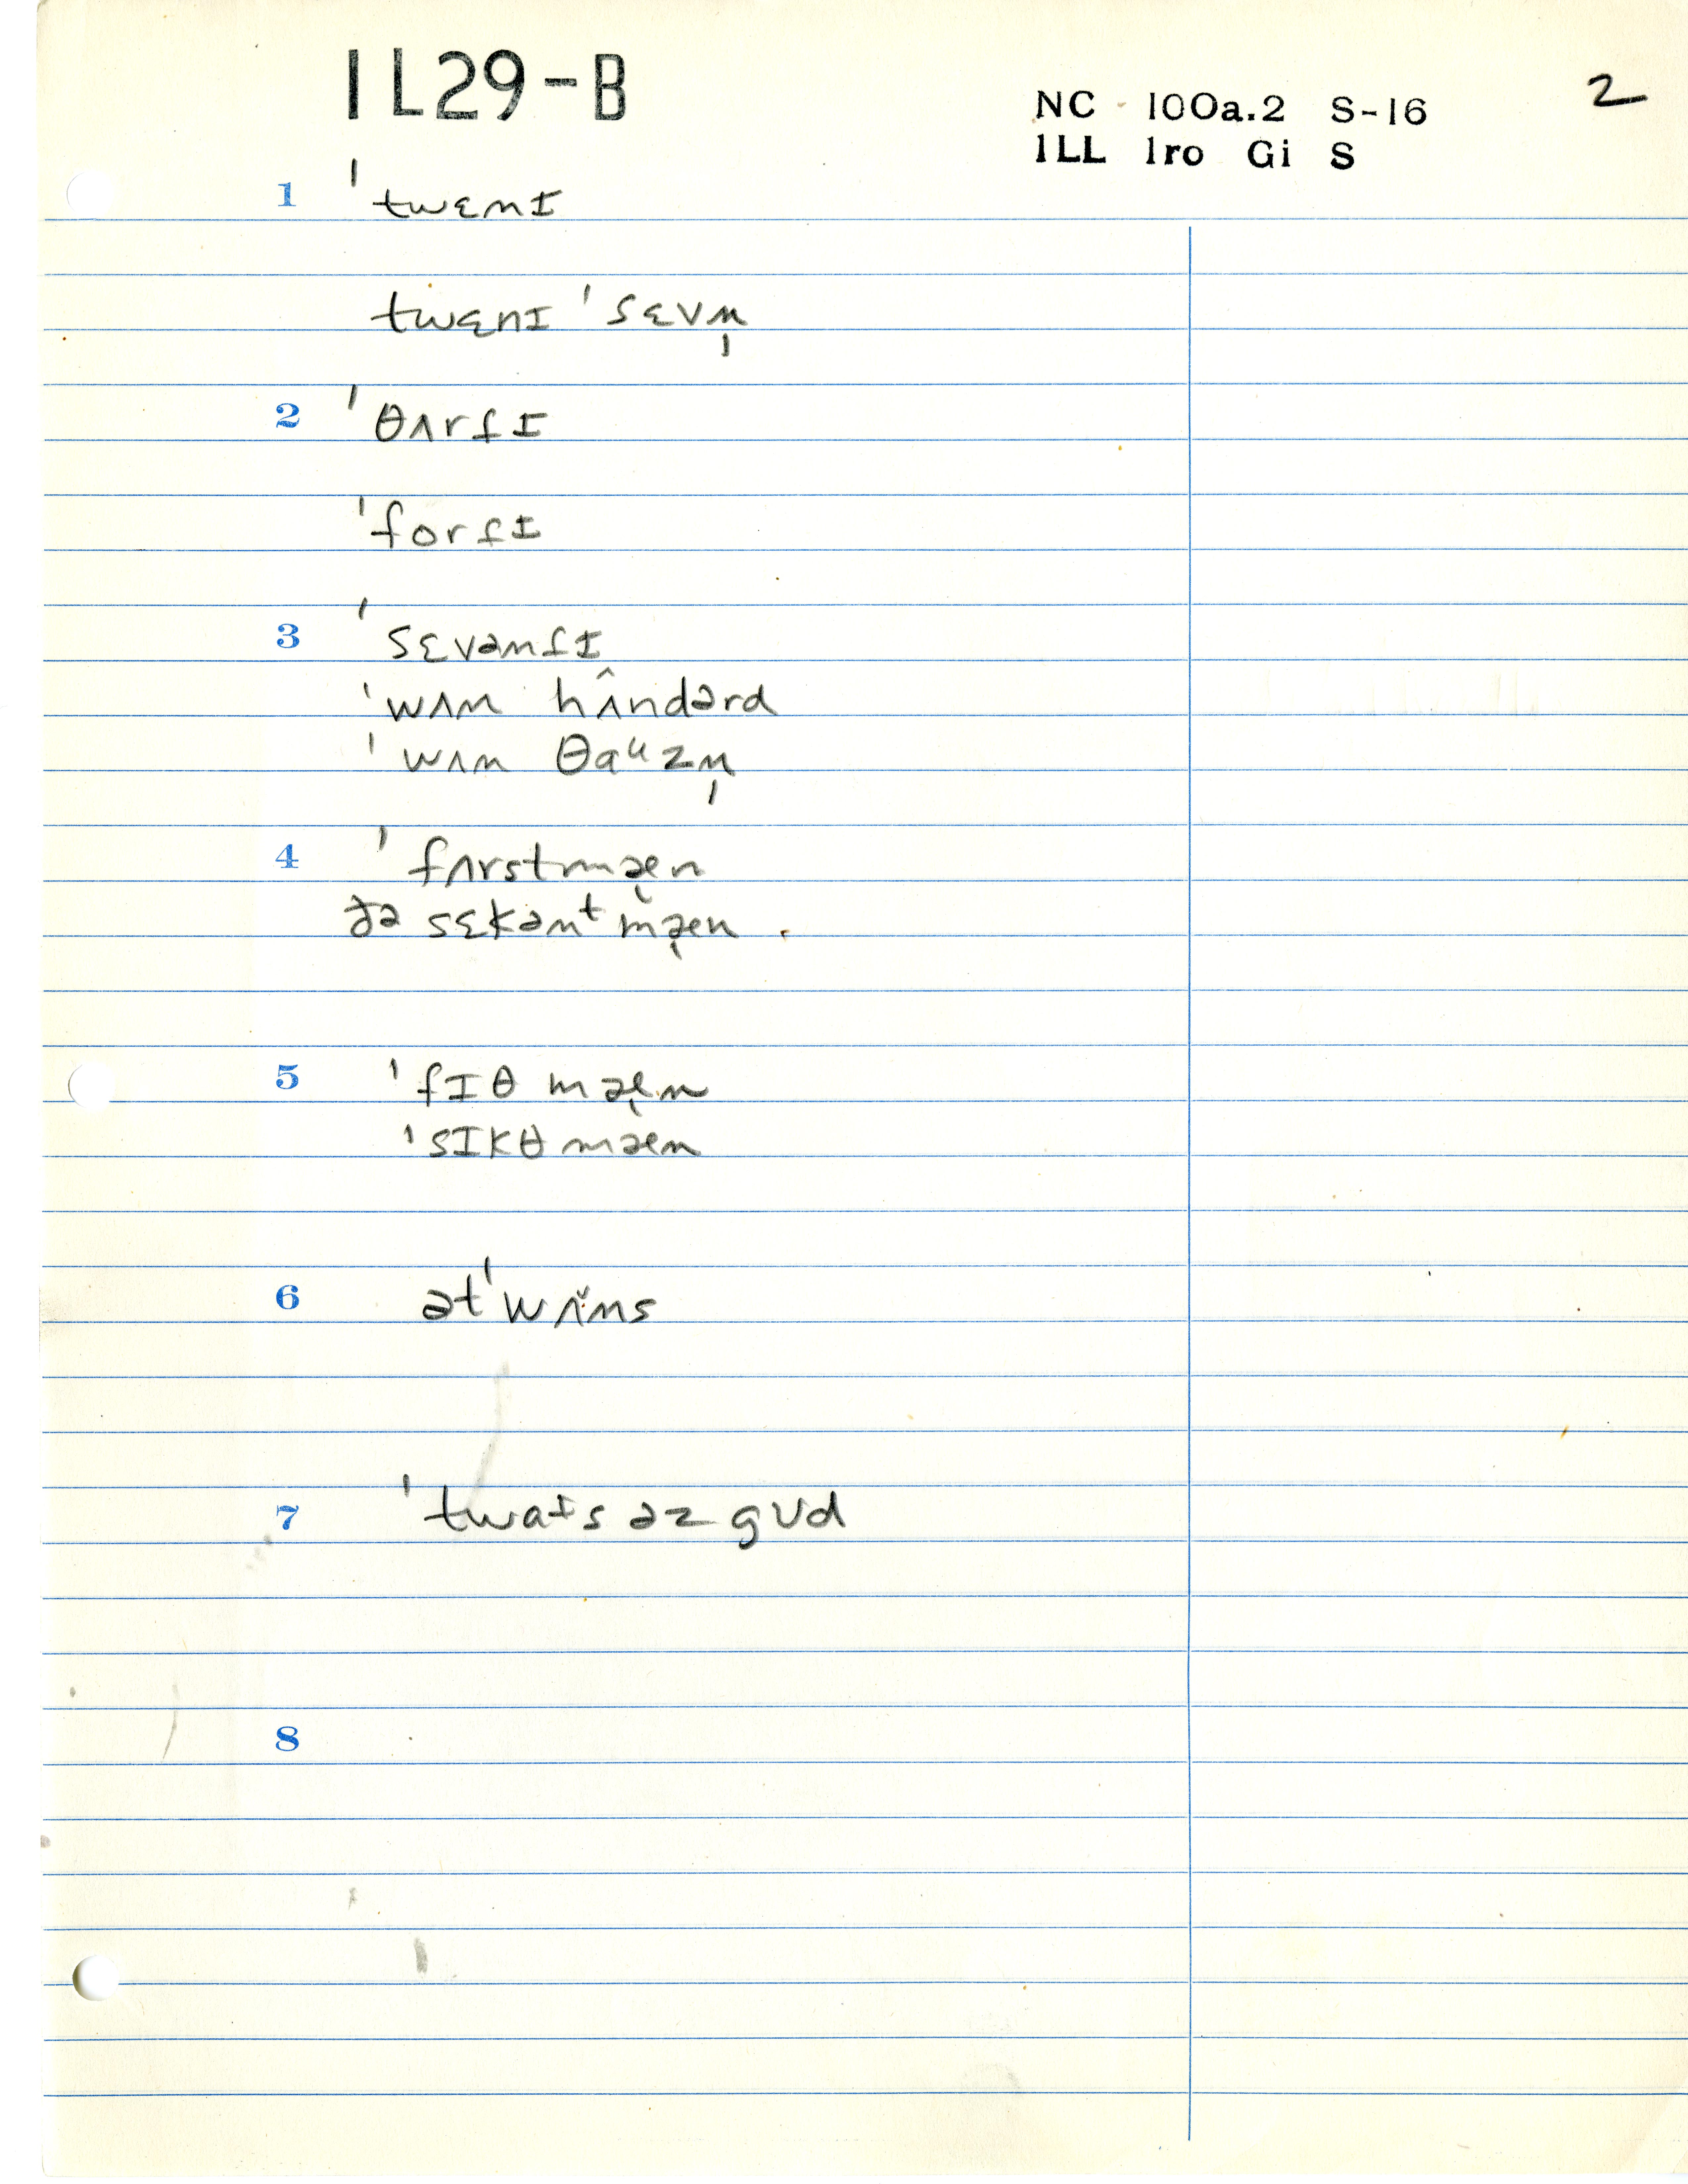 IL29-B
NC 100a.2 S-16 2
ILL Iro Gi S
1 ˈtwɛnɪ
twɛnɪ ˈsɛvn̩
2 ˈθʌrt̬ɪ
ˈfort̬ɪ
3 ˈsɛvənt̬ɪ
ˈwʌn hʌ̂ndərd
ˈwʌn θaᶸzn̩
4 ˈfʌrstmæ̨n
ðə sɛkənᵗmæ̨n
5 ˈfɪθ mæ̨n
ˈsɪkθ mæn
6 ətˈwʌ̌ns
7 ˈtwaɪs əz gʊd
8